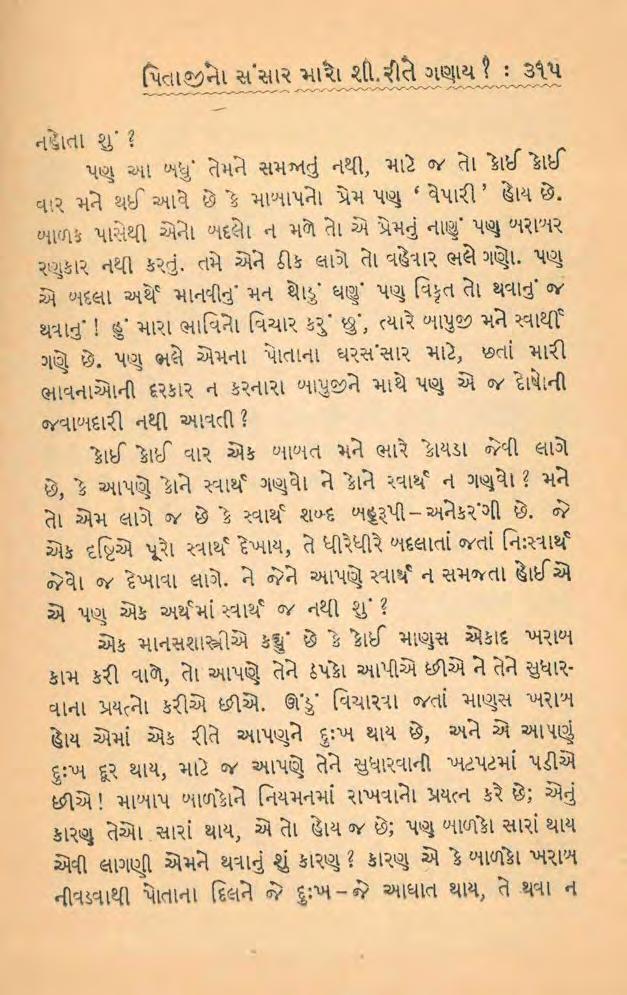 પિતાજીનો સંસાર મારો શી.રીતે ગણાય ? : ૩૧૫
નહોતા શું ?
પણ આ બધું તેમને સમજાતું નથી, માટે જ તો કોઈ કોઈ
વાર મને થઈ આવે છે કે માબાપનો પ્રેમ પણ ‘ વેપારી ’ હોય છે.
બાળક પાસેથી એનો બદલો ન મળે તો એ પ્રેમનું નાણું પણ બરાબર
રણકાર નથી કરતું. તમે એને ઠીક લાગે તો વહેવાર ભલે ગણો. પણ
એ બદલા અર્થે માનવીનું મન થોડું ઘણું પણ વિકૃત તો થવાનું જ
થવાનું ! હું મારા ભાવિનો વિચાર કરું છું, ત્યારે બાપુજી મને સ્વાર્થી
ગણે છે. પણ ભલે એમના પોતાના ઘરસંસાર માટે, છતાં મારી
ભાવનાઓની દરકાર ન કરનારા બાપુજીને માથે પણ એ જ દોષોની
જવાબદારી નથી આવતી ?
કોઈ કોઈ વાર એક બાબત મને ભારે કોયડા જેવી લાગે
છે, કે આપણે કોને સ્વાર્થ ગણવો ને કોને સ્વાર્થ ન ગણવો ? મને
તો એમ લાગે જ છે કે સ્વાર્થ શબ્દ બહૂરૂપી – અનેકરંગી છે. જે
એક દૃષ્ટિએ પૂરો સ્વાર્થ દેખાય, તે ધીરેધીરે બદલાતાં જતાં નિઃસ્વાર્થ
જેવો જ દેખાવા લાગે. ને જેને આપણે સ્વાર્થ ન સમજતા હોઈએ
એ પણ એક અર્થમાં સ્વાર્થ જ નથી શું ?
એક માનસશાસ્ત્રીએ કહ્યું છે કે કોઈ માણસ એકાદ ખરાબ
કામ કરી વાળે, તો આપણે તેને ઠપકો આપીએ છીએ ને તેને સુધાર-
વાના પ્રયત્નો કરીએ છીએ. ઊંડું વિચારવા જતાં માણસ ખરાબ
હોય એમાં એક રીતે આપણને દુઃખ થાય છે, અને એ આપણું
દુઃખ દૂર થાય, માટે જ આપણે તેને સુધારવાની ખટપટમાં પડીએ
છીએ ! માબાપ બાળકોને નિયમનમાં રાખવાનો પ્રયત્ન કરે છે; એનું
કારણ તેઓ સારાં થાય, એ તો હોય જ છે; પણ બાળકો સારાં થાય
એવી લાગણી એમને થવાનું શું કારણ ? કારણ એ કે બાળકો ખરાબ
નીવડવાથી પોતાના દિલને જે દુઃખ – જે આઘાત થાય, તે થવા ન